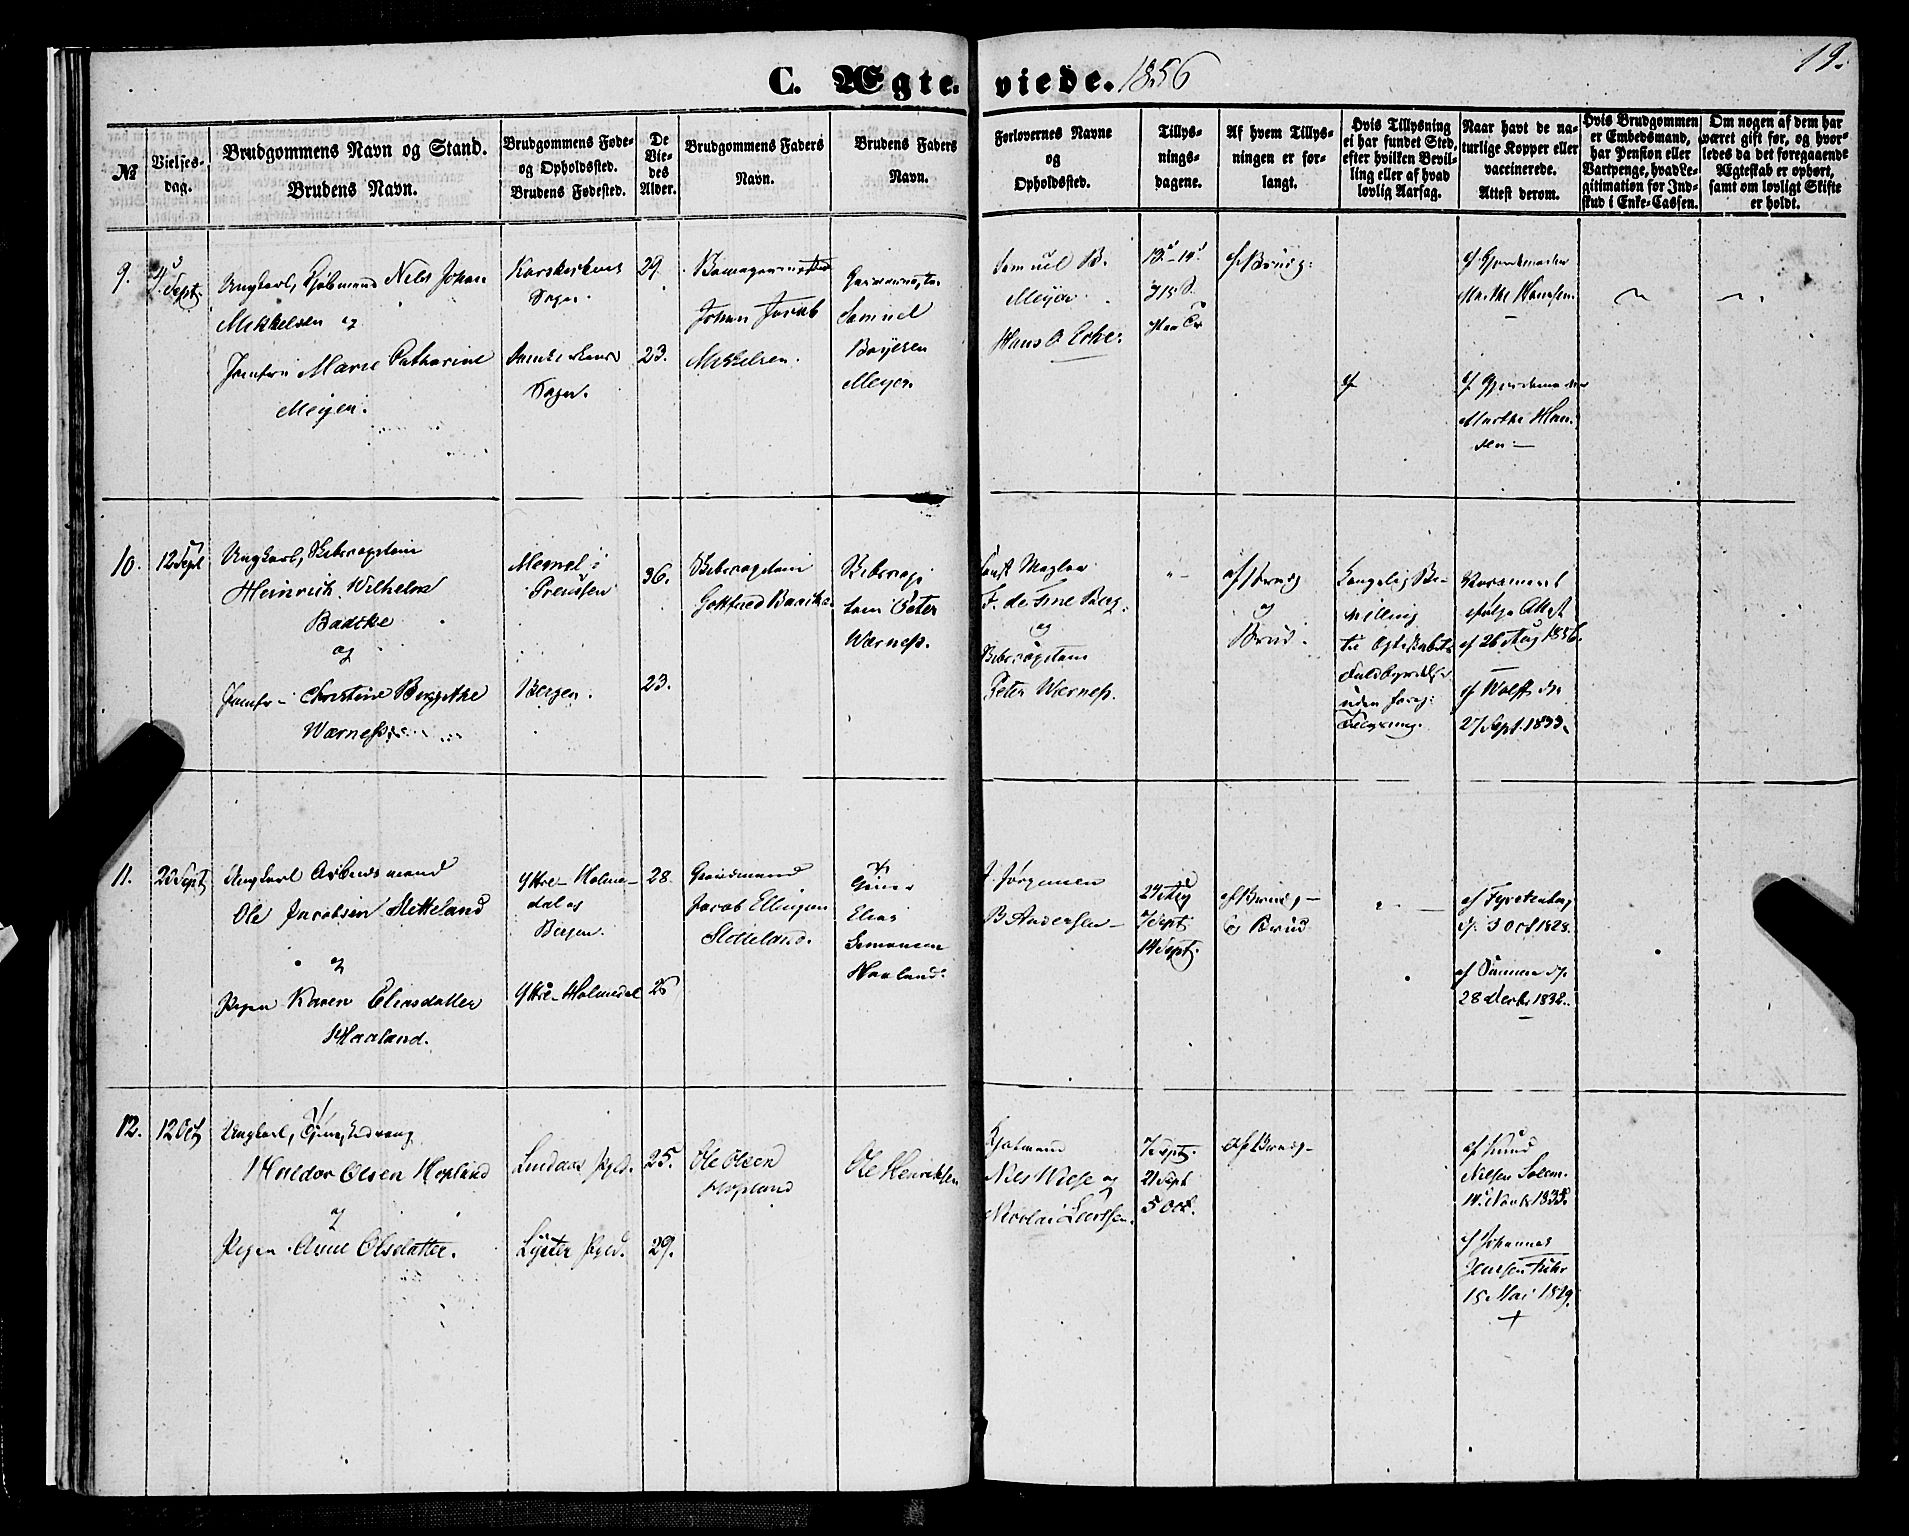 19.
C. Ægteviede. 1856
№
Vielses-
dag.
Brudgommens Navn og Stand.
Brudens Navn.
Brudgommens Føde-
og Opholdssted.
Brudens Fødested.
De
Vie-
des
Alder.
Brudgommens Faders
Navn.
Brudens Faders
Navn.
Forlovernes Navne
og
Opholdssted.
Tillys-
nings-
dagene.
Af hvem Tillys-
ningen er for-
langt.
Hvis Tillysning
ei har fundet Sted,
efter hvilken Bevil-
ling eller af hvad
lovlig Aarsag.
Naar havt de na-
turlige Kopper eller
vaccinerede.
Attest derom.
Hvis Brudgommen
er Embedsmand,
har Pension eller
Vartpenge, hvad Le-
gitimation for Ind-
skud i Enke-Cassen.
Om nogen af dem har
været gift før, og hvor-
ledes da det foregaaende
Ægteskab er ophørt,
samt om lovligt Skifte
er holdt.
9.
4 Sept.
Ungkarl, Kjøbmand Nils Johan
Mikkelsen og
Jomfru Marie Catharine
Meyer.
Korskirkens
Sogn.
Sogn.
29.
23.
Johan Jacob
Mikkelsen.
Samuel
Boyesen
Meyer.
Samuel B.
Meyer.
Hans O
af Brudg:
af Gjordemoder
Marthe Hansen.
af Gjordemoder
Marthe Han-
sen
10.
12 Sept
Ungkarl, Skibscaptain
Heinrich Wilhelm
Badtke
og
Jomfru Christine Birgitthe
Wærness
Memel i
Preussen
Bergen.
36.
23.
Skibscaptain
Gottfried
Skibscap
tain Peter
Wærness.
F. de Fine Berg.
og
Skibscaptain
Peter Wærness.
af Brudg
og
Brud.
Kongelig Be-
villing
til Ægteskabets
Fuldbyrdelse
uden foreg:
Tillysning.
ifølge Attest
af 26 Aug 1856.
af Wolff d.
27 Sept. 1833.
11.
Ungkarl Arbeidsmand
Ole Jacobsen Sletteland
og
Pigen Karen Eliasdatter
Haaland.
Yttre-Holme-
dal og
Bergen.
Yttre-Holmedal
28.
25
Gaardmand
Jacob Ellingsen
Sletteland.
Elias
Simonsen
Haaland.
Jørgensen
B Andersen
7 Sept
14 Sept.
af Brudg
og Brud
3 Oct 1828.
28 Decbr 1832.
12.
12 Oct
Ungkarl, Tjenestedreng
Haldor Olsen Hopland
og
Pigen Anne Olsdatter.
Lindaas Pgld.
Lyster Pgld.
25.
29.
Ole Olsen
Hopland
Ole Henriksen
Kjøbmand
Nils Wiese og
Nicolai
7 Sept.
21 Sept
5 Oct.
af Brudg
af Knud
Nielsen
af Johannes
Jensen
15 Mai 1829.